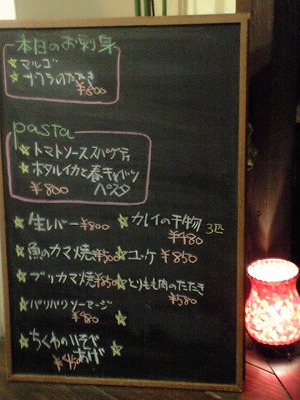 本日のお刺身
マルゴ
のたたき
¥800
pasta
トマトソーススパゲティ
ホタルイカと春キャベツ
¥800 ペスタ
生レバー ¥800
カレイの干物 3匹
¥480
魚のカマ焼き ¥500
ユッケ ¥850
ブリカマ焼 ¥850
とりもも肉のたたき
¥580
パリパリソーセージ
¥480
ちくわのいそべ
あげ